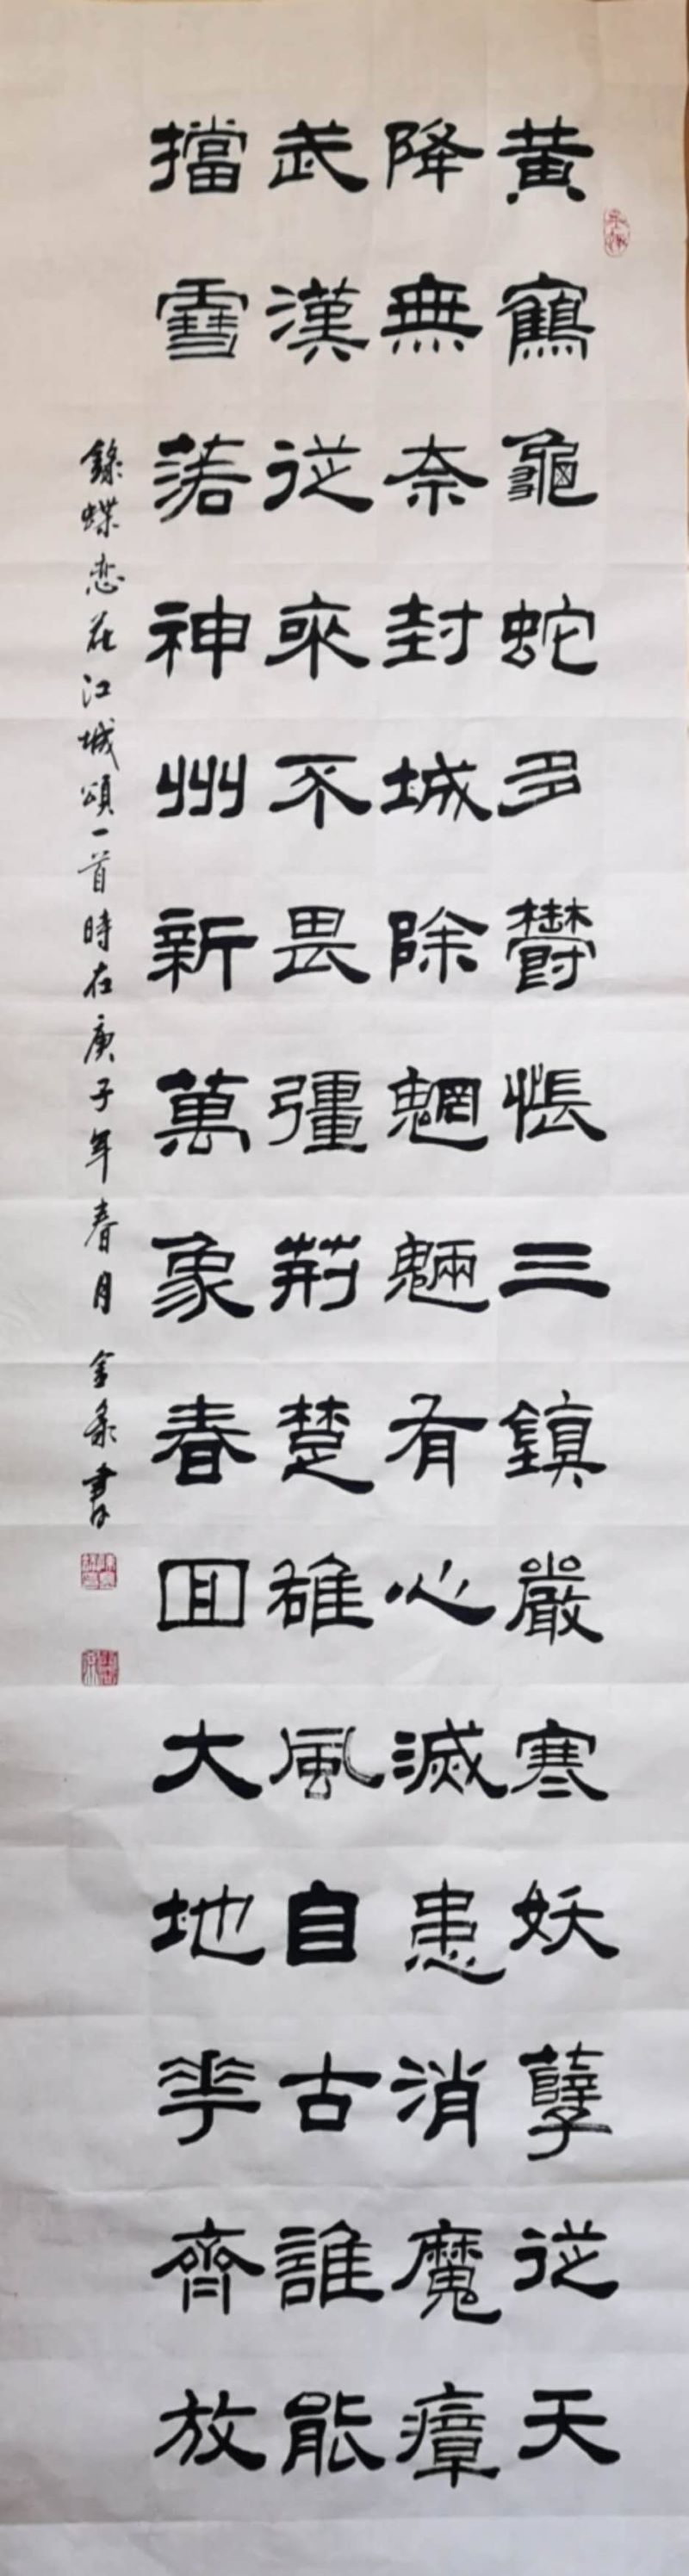 黄鶴龜蛇多鬱悵三鎮嚴寒妖孽從天
降無奈封城除魍魎有心滅患消魔瘴
武漢從來不畏彊荊楚雄風自古誰能
擋雪落神州新萬象春回大地華齊放
錄蝶恋花江城頌一首時在庚子年春月 金彖書